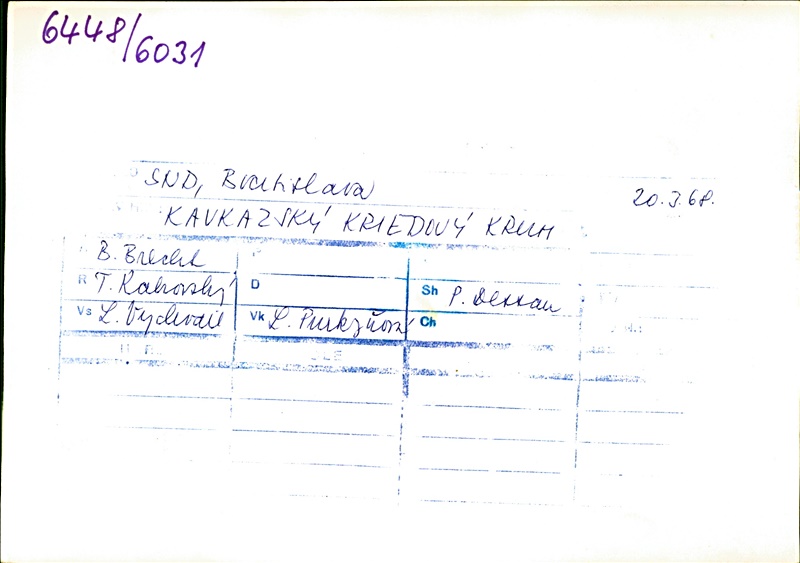 6448/6031
SND, Bratislava 20.3.68.
KAVKAZSKÝ KRIEDOVÝ KRUH
B. Brecht
R T. Rakovský D Sh P. Dessau
Vs L. Vychodil Vk L. Purkyňová Ch